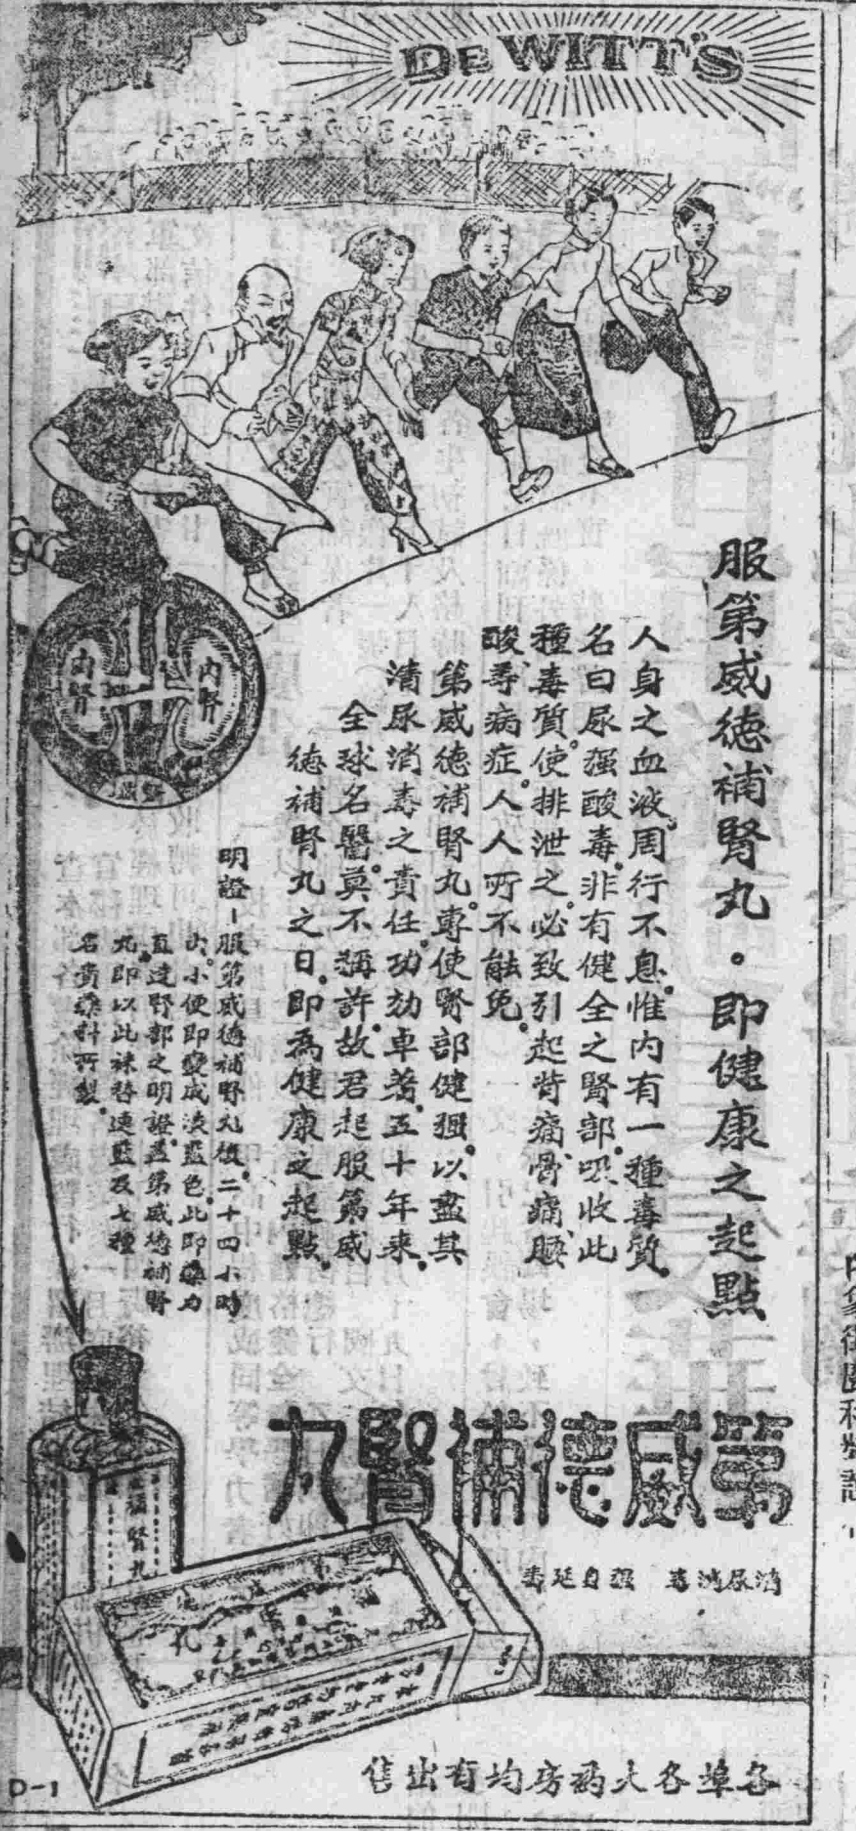 DE WITT'S
服第威德補腎丸・即健康之起點
人身之血液。周行不息。惟內有一種毒質。
名曰尿强酸毒。非有健全之腎部。吸收此
種毒質。使排泄之。必致引起背痛、骨痛、腰
酸等病症。人人所不能免。
第威德補腎丸。專使腎部健强。以盡其
清尿消毒之責任。功効卓著。五十年來。
全球名醫。莫不稱許。故君起服第威
德補腎丸之日。即為健康之起點。
內腎
內腎
明證-服第威德補腎丸後。二十四小時
內。小便即變成淡藍色。此即藥力
直達腎部之明證。蓋第威德補腎
丸。即以此 及七種
名貴藥料所製。
第威德補腎丸
清尿消毒 强身延壽
補腎丸
各埠各大葯房均有出售
D-1